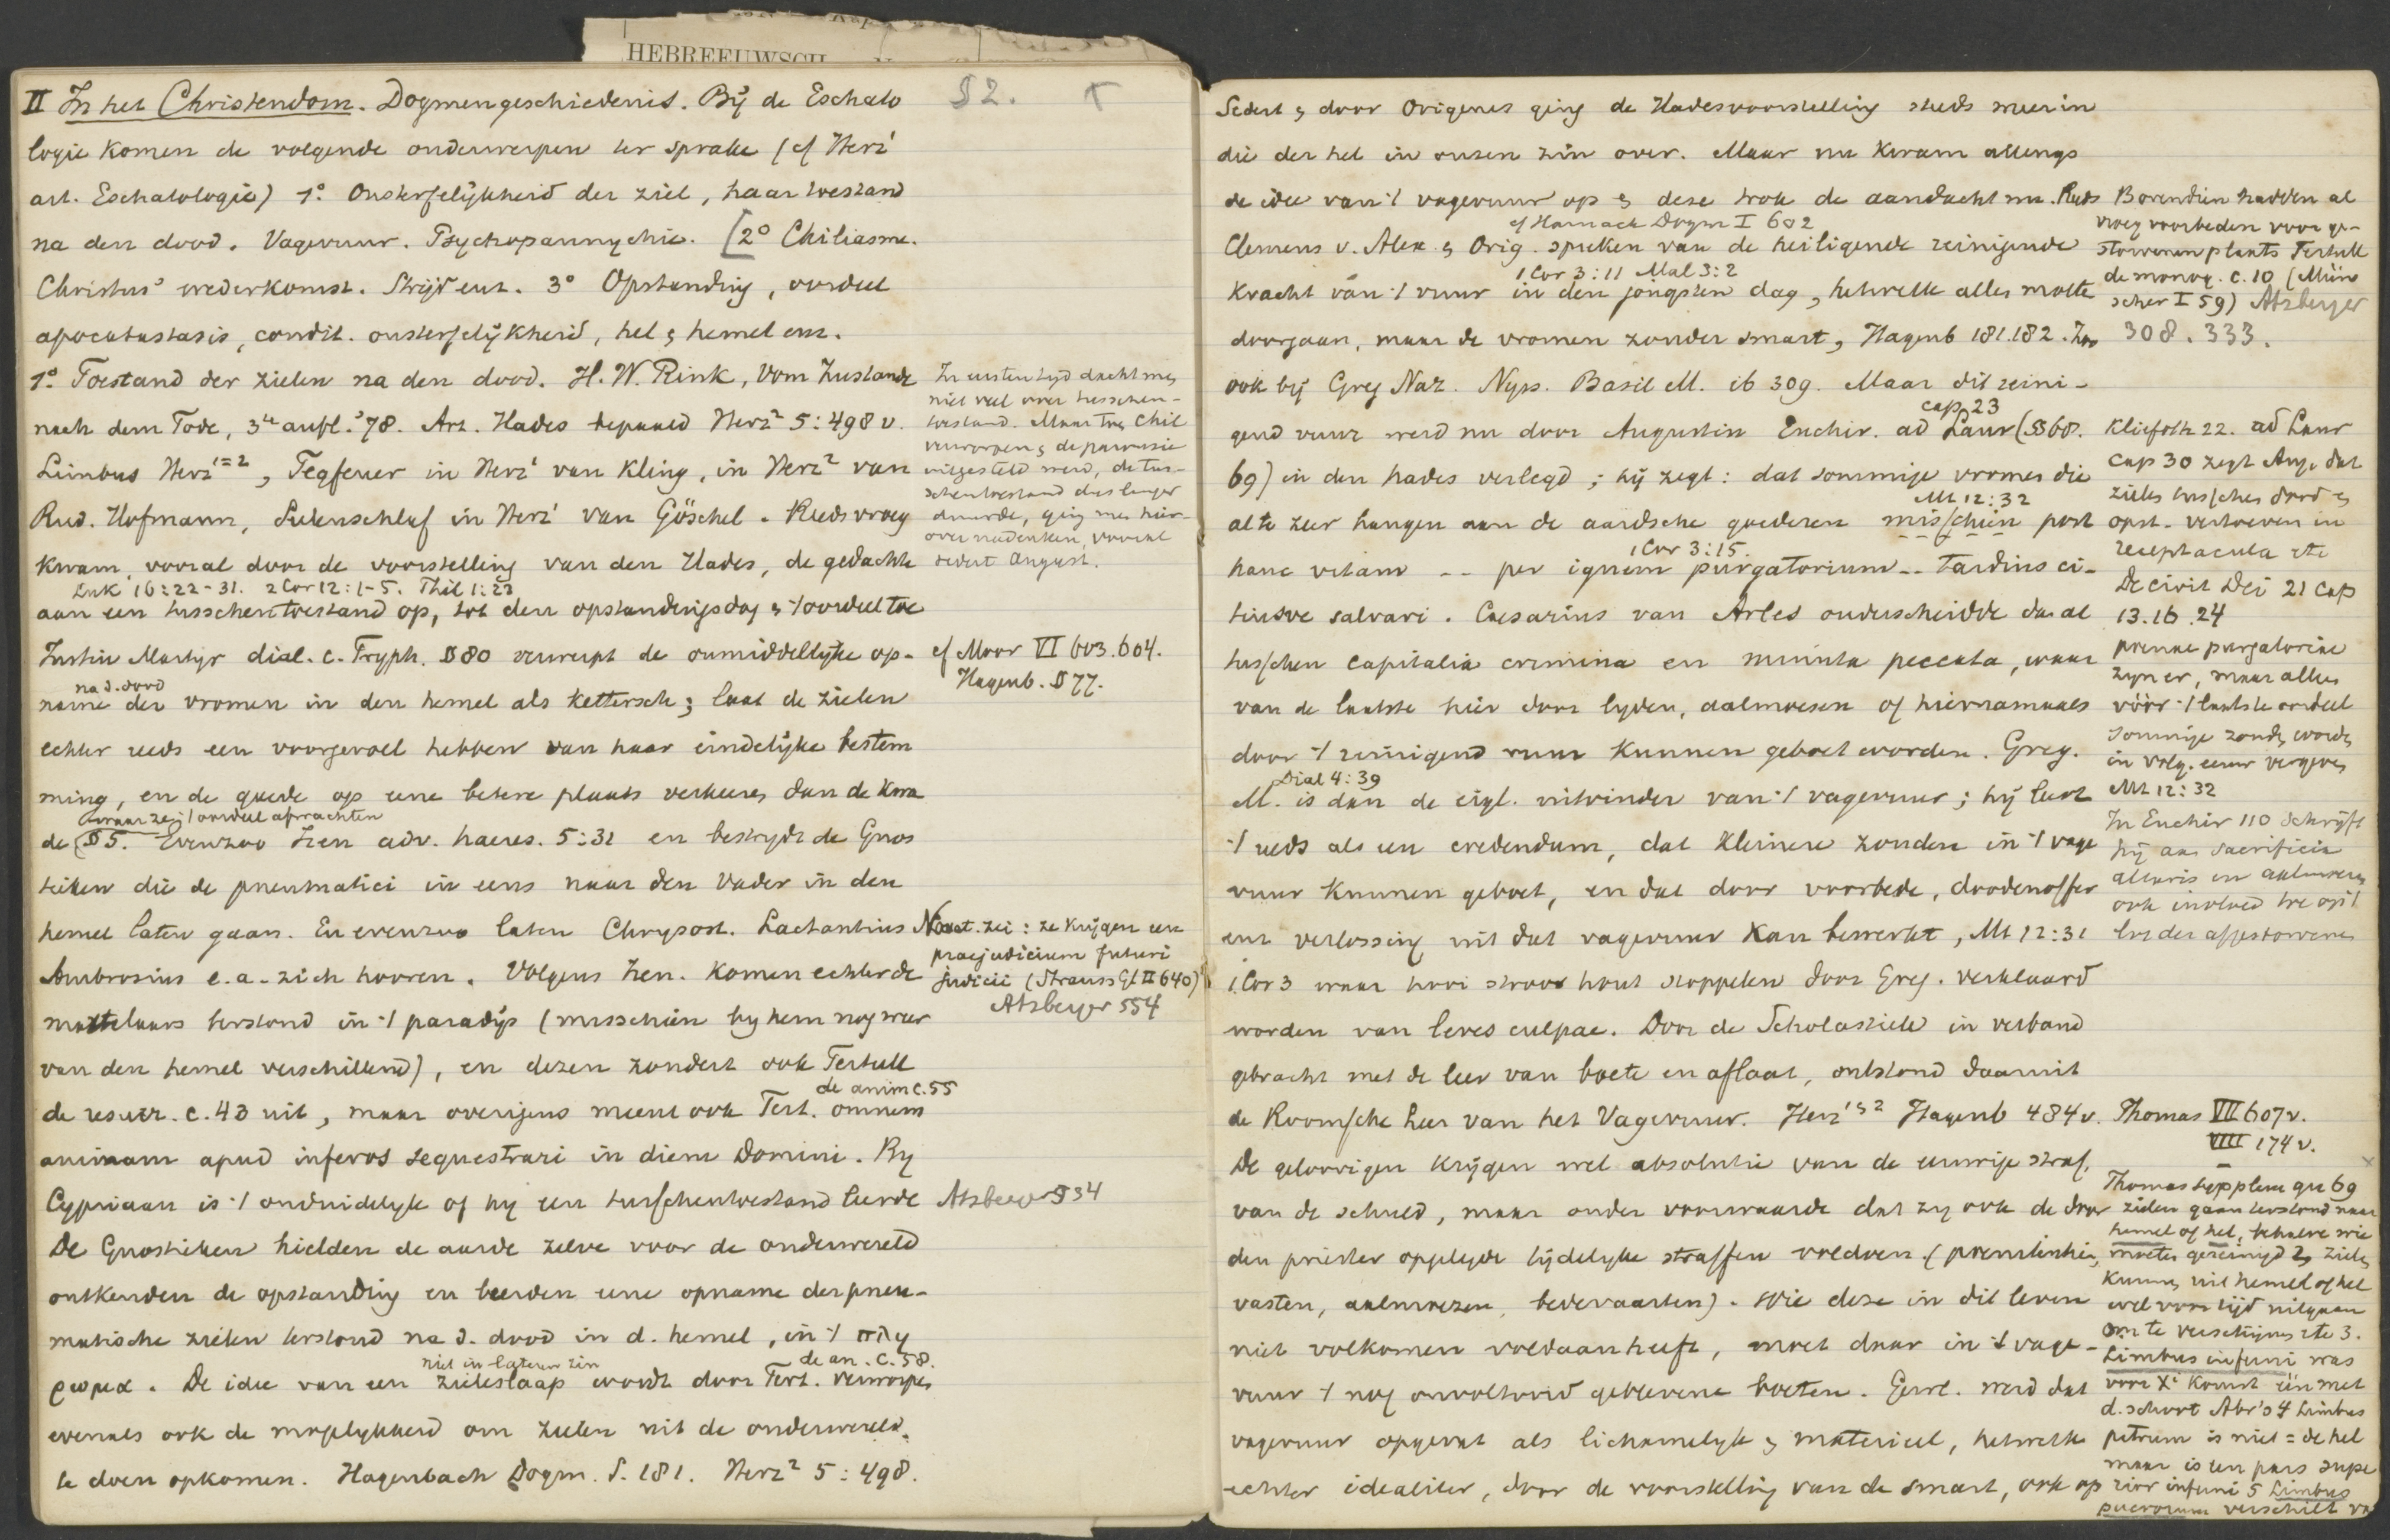 HEBREEUWSCH
II In het Christendom. Dogmengeschiedenis. Bij de Eschato
§ 2.
logie komen de volgende onderwerpen ter sprake (cf Herz¹
art. Eschatologie) 1º Onsterfelijkheid der ziel, haar toestand
na den dood. Vagevuur. Psychopannychie. [2º Chiliasme.
Christus' wederkomst. Strijd enz. 3º Opstanding, oordeel
apocatastasis, condit. onsterfelijkheid, hel & hemel enz.
1º Toestand der zielen na den dood. H. W. Rink, Vom Zustande
nach dem Tode, 3te aufl. '78. Art. Hades bepaald Herz² 5:498 v.
Limbus Herz¹⁼², Fegfeuer in Herz¹ van Kling, in Herz² van
Rud. Hofmann, Seelenschlaf in Herz¹ van Göschel. Reeds vroeg
kwam vooral door de voorstelling van den Hades, de gedachte
Luk 16:22-31. 2 Cor 12:1-5. Phil 1:23
aan een tusschentoestand op, tot den opstandingsdag & 't oordeel toe
In eersten tijd dacht men
niet veel over tusschen-
toestand. Maar toen Chil
verworpen & de parousie
uitgesteld werd, de tus-
schentoestand dus langer
duurde, ging men hier-
over nadenken, vooral
sedert August.
Justin Martyr dial. c. Tryph. § 80 verwerpt de onmiddellijke op-
cf Moor VI 603.604.
Hagenb. § 77.
na d. dood
name der vromen in den hemel als kettersch; laat de zielen
echter reeds een voorgevoel hebben van haar eindelijke bestem
ming, en de goede op eene betere plaats verkeeren dan de kwa
waar ze 't oordeel afwachten
de § 5. Evenzoo Iren adv. haeres. 5:31 en bestrijdt de Gnos
tieken die de pneumatici in eens naar den Vader in den
hemel laten gaan. En evenzoo laten Chrysost. Lactantius
Novat. zei: ze krijgen een
praejudicium futuri
judicii (Strauss Gl II 640)
Atzberger 554
Ambrosius e.a. zich hooren. Volgens Iren. komen echter de
martelaars terstond in 't paradijs (misschien by hem nog weer
van den hemel verschillend), en dezen zondert ook Tertull
de anim c.55
de resurr. c. 43 uit, maar overigens meent ook Tert. omnem
animam apud inferos sequestrari in diem Domini. By
Cypriaan is 't onduidelijk of hij een tusschentoestand leerde
Atzberger 534
De Gnostieken hielden de aarde zelve voor de onderwereld
ontkenden de opstanding en leerden eene opname der pneu-
matische zielen terstond na d. dood in d. hemel, in 't πλη
ρωμα. De idee van een zieleslaap wordt door Tert. verworpen
niet in lateren zin
de an. c. 58.
evenals ook de mogelykheid om zielen uit de onderwereld
te doen opkomen. Hagenbach Dogm. S. 181. Herz² 5:498.
Sedert & door Origenes ging de Hadesvoorstelling steeds meer in
die der hel in onzen zin over. Maar nu kwam allengs
de idee van 't vagevuur op & deze trok de aandacht nu. Reeds
cf Harnack Dogm I 602
Clemens v. Alex & Orig. spreken van de heiligende reinigende
1 Cor 3:11 Mal 3:2
kracht van 't vuur in den jongsten dag, hetwelk alles moeten
doorgaan, maar de vromen zonder smart, Hagenb 181.182. Zoo
Bovendien hadden al
vroeg voorbeden voor ge-
storvenen plaats Tertull
de monog. c. 10 (Mün
scher I 59) Atzberger
308. 333.
ook bij Greg Naz. Nyss. Basil M. ib 309. Maar dit reini-
cap. 23
gend vuur werd nu door Augustin Enchir. ad Laur (§§ 68.
69) in den hades verlegd; hij zegt: dat sommige vromen die
Mt 12:32
al te zeer hangen aan de aardsche goederen misschien post
1 Cor 3:15.
hanc vitam -- per ignem purgatorium -- tardius ci-
tiusve salvari. Caesarius van Arles onderscheidde dan al
tusschen capitalia crimina en minuta peccata, waar
van de laatste hier door lyden, aalmoesen of hiernamaals
door 't reinigend vuur kunnen geboet worden. Greg.
Dial 4:39
M. is dan de eigl. uitvinder van 't vagevuur; hij leert
't reeds als een credendum, dat kleinere zonden in 't vage
vuur kunnen geboet, en dat door voorbede, doodenoffer
enz verlossing uit dat vagevuur kan bewerkt, Mt 12:31
1 Cor 3 waar hooi stroo hout stoppelen door Greg. verklaard
worden van leves culpae. Door de Scholastiek in verband
gebracht met de leer van boete en aflaat, ontstond daaruit
de Roomsche leer van het Vagevuur. Herz¹ & ² Hagenb 484 v.
Kliefoth 22. ad Laur
cap 30 zegt Aug. dat
zielen tusschen dood &
opst. vertoeven in
receptacula etc
De civit Dei 21 cap
13.16.24
poenae purgatoriae
zyn er, maar alleen
vóór 't laatste oordeel
sommige zonden worden
in volg. eeuw vergeven
Mt 12:32
In Enchir 110 schrijft
hij aan sacrificia
altaris en aalmoezen
ook invloed toe op 't
lot der afgestorvenen
Thomas VII 607 v.
VIII 174 v.
De geloovigen krijgen wel absolutie van de eeuwige straf,
van de schuld, maar onder voorwaarde dat zij ook de door
den priester opgelegde tijdelijke straffen voldoen (poenitentie,
vasten, aalmoezen, bedevaarten). Wie deze in dit leven
niet volkomen voldaan heeft, moet daar in 't vage-
vuur 't nog onvoltooid geblevene boeten. Gewl. werd dat
vagevuur opgevat als lichamelyk & materieel, hetwelk
echter idealiter, door de voorstelling van de smart, ook op
Thomas supplem qu 69
zielen gaan terstond naar
hemel of hel, behalve wie
moeten gereinigd 2, zielen
kunnen uit hemel of hel
wel voor tijd uitgaan
om te verschijnen etc 3.
Limbus inferni was
voor X' komst één met
d. schoot Abr's 4 Limbus
patrum is niet = de hel
maar is een pars supe
rior inferni 5 Limbus
puerorum verschilt va